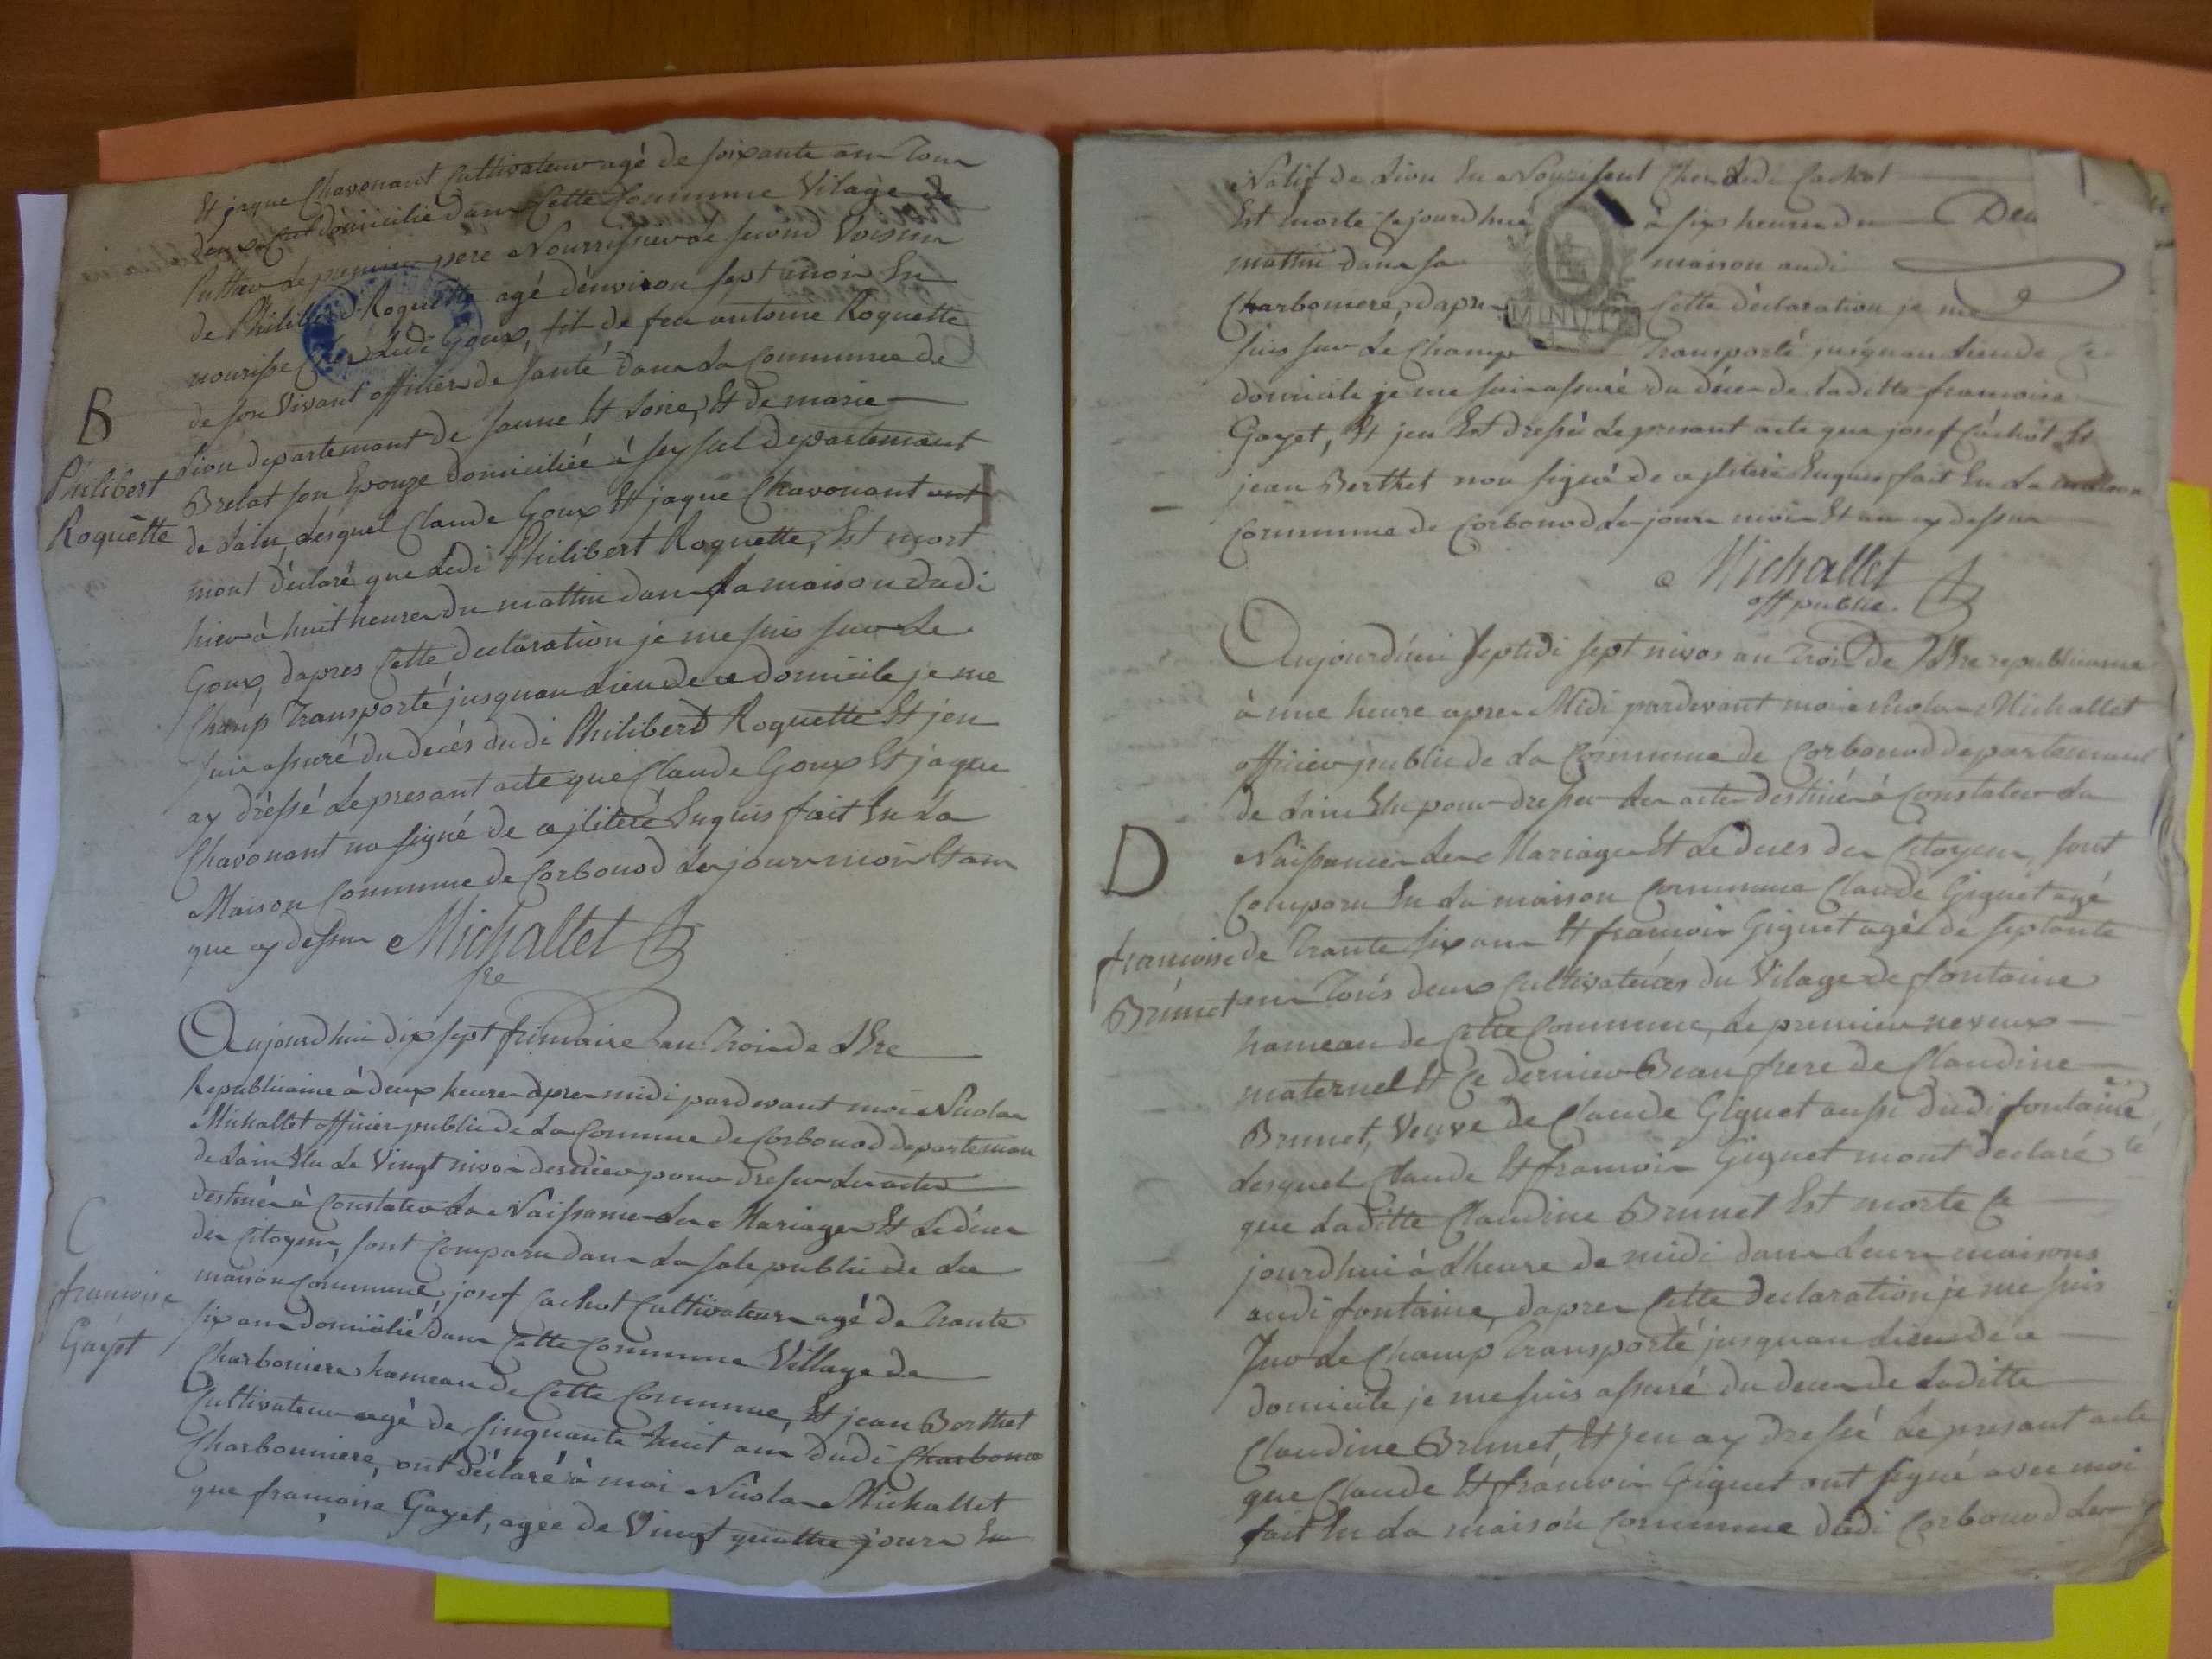 Et jaque Chavonant Cultivateur agé de soixante ans Tous
deux domicilié dans Cette Commune Vilage de
Puttier Le premier pere Nourrissier Le second Voisin
de Philibert Roquette agé d'environ sept mois En
nourisse Chez Ledi Goux, fils de feu antoine Roquette
de son Vivant officier de santé dans La Commune de
Lion departemant de saune Et Loire, Et de marie
Brelat son Epouze domiciliée à seyssel departemant
de Lain, Lesquel Claude Goux Et jaque Chavonant ont
mont déclaré que Ledi Philibert Roquette, Est mort
hier à huit heures du mattin dans sa maison dudi
Goux, dapres Cette declaration je me suis sur Le
Champ Transporté jusquau Lieu de ce domicile je me
suis assuré du decés dudi Philibert Roquette Et jen
ay drèssé Le presant acte que Claude Goux Et jaque
Chavonant na signé de ce jliteré Enquis fait En La
Maison Commune de Corbonod Les jour mois Et an
que cy dessus Michallet
sre
B
Philibert
Roquètte
Aujourdhui dix sept frimaire an Trois de Lhre
Republicaine à deux heures apres midi pardevant moi Nicolas
Michallet officier public de La Commune de Corbonod departeman
de Lain Elu Le Vingt nivos dernier pour dresser Les actes
destinés à Constater La Naissances Les Mariages Et Le déces
des Citoyens, sont Comparu dans La sale public de La
maison Commune josef Cachot Cultivateur agé de Trante
six ans domicilié dans Cette Commune Village de
Charboniere hameau de Cette Commune, Et jean Berthet
Cultivateur agé de sinquante huit ans dudi Charbonie
Charbonniere, ont déclaré à moi Nicolas Michallet
que françoise Gayet, agée de Vingt quattre jours En
C
francoise
Gayet
Natif de Lion En Nourissent Chez Ledi Cachot
Est morte Cejourdhui à six heures du Deu
mattin dans sa maison audi
Charboniere, dapres Cette déclaration je me
MINUTE
suis sur Le Champ Transporté jusquau Lieu de Ce
domicile je me suis assuré du déces de Laditte francoise
Gayet, Et jen Est dressé Le presant acte que josef Cachot Et
jean Berthet non signé de ce jliteré Enquis fait En La maison
Commune de Corbonod Les jour mois Et an cy dessus
Michallet
off public.
Aujourdhui septidi sept nivos an Trois de Lhre republicaine
à une heure apres Midi pardevant moi Nicolas Michallet
officier public de La Commune de Corbonod departemant
de Lain Elu pour dresser Les actes destinés à Constater La
Naissances Les Mariages Et Le déces des Citoyens, sont
Comparu En La maison Commune Claude Giguet agé
de Trante six ans Et francois Giguet agé de septante
ans Tous deux Cultivateurs du Vilage de fontaine
hameau de Cette Commune, Le premier neveux
maternel Et Ce dernier Beau frere de Claudine
Brunet, Veuve de Claude Giguet aussi dudi fontaine
Lesquel Claude Et francois Giguet mont declaré
que Laditte Claudine Brunet Est morte Ce
jourdhui à Lheure de midi dans Leurs maisons
audi fontaine, dapres Cette declaration je me suis
sur Le Champ Transporté jusquau Lieu de ce
domicile je me suis assuré du deces de Laditte
Claudine Brunet, Et jen ay dressé Le presant acte
que Claude Et francois Giguet ont signé avec moi
fait En La maison Commune dudi Corbonod Les
D
francoise
Brunet